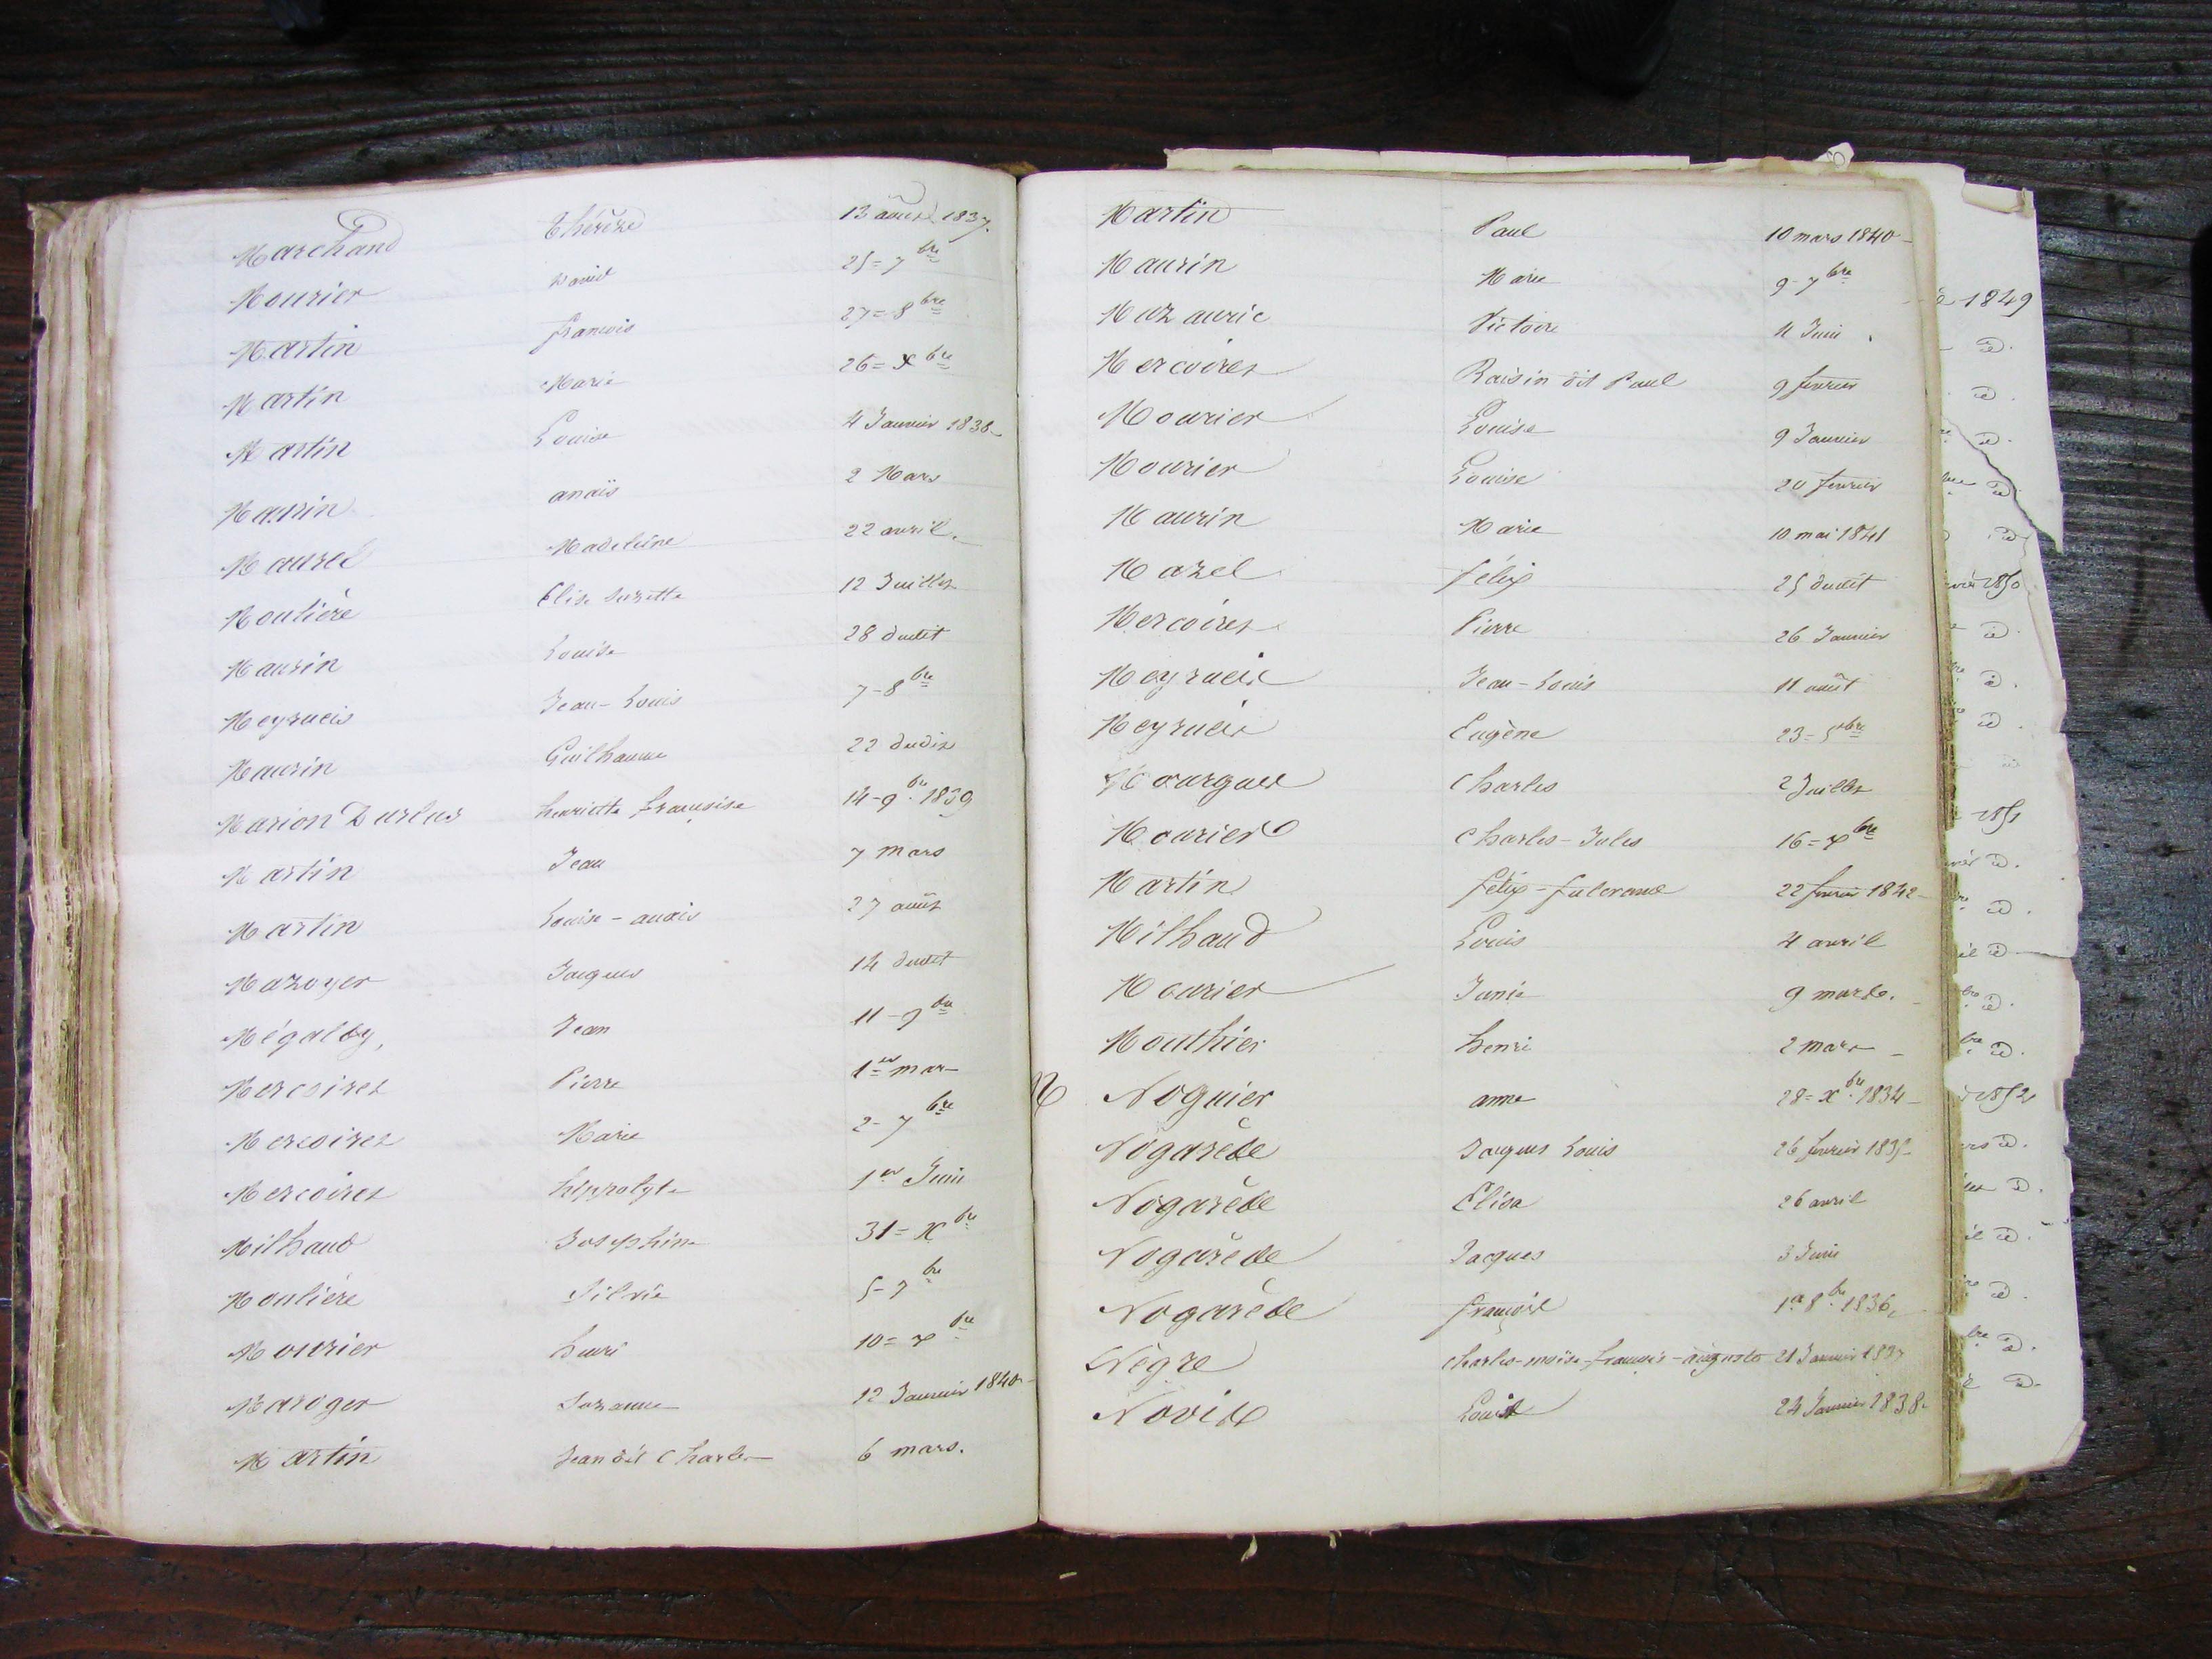 Marchand Thérèse 13 août 1837.
Mourier David 25=7bre
Martin francois 27=8bre
Martin Marie 26=Xbre
Martin Louise 4 Janvier 1838
Maurin anaïs 2 Mars
Maurel Madeleine 22 avril.
Moulière Elise Suzette 12 Juillet
Maurin Louise 28 dudit
Meyrueis Jean-Louis 7-8bre
Maurin Guilhaume 22 dudit
Marion Durlus henriette françoise 14-9bre 1839
Martin Jean 7 mars
Martin Louise-anaïs 27 août
Mazoyer Jacques 14 dudit
Mégalby, Jean 11-9bre
Mercoiret Pierre 1er mars
Mercoiret Marie 2-7bre
Mercoiret hippolyte 1er Juin
Milhaud Josephine 31=Xbre
Moulière Silvie 5-7bre
Mourier henri 10=Xbre
Maroger Suzanne 12 Janvier 1840
Martin Jean dit Charles 6 mars.
Martin Paul 10 mars 1840
Maurin Marie 9-7bre
Mazauric Victoire 11 Juin
Mercoiret Raisin dit Paul 9 fevrier
Mourier Louise 9 Janvier
Mourier Louise 20 fevrier
Maurin Marie 10 mai 1841
Mazel félix 25 dudit
Mercoiret Pierre 26 Janvier
Meyrueis Jean-Louis 11 août
Meyrueis Eugène 23=
Mourgues Charles 2 Juillet
Mourier Charles-Jules 16=Xbre
Martin félix-fulcrand 22 fevrier 1842
Milhaud Louis 4 avril
Mourier Junie 9 mars
Mouthier henri 2 mars
N Noguier anne 28=Xbre 1834
Nogarède Jacques Louis 26 fevrier 1835
Nogarède Elisa 26 avril
Nogarède Jacques 3 Juin
Nogarède françois 1er 8bre 1836
Nègre Charles-moïse-françois-auguste 21 Janvier 1837
Novis Louis 24 Janvier 1838.
1849
d.
d.
d.
d.
d
1850
d.
d.
d.
1851
d.
d.
d
d.
d.
1852
d.
d.
d.
d.
d.
d.